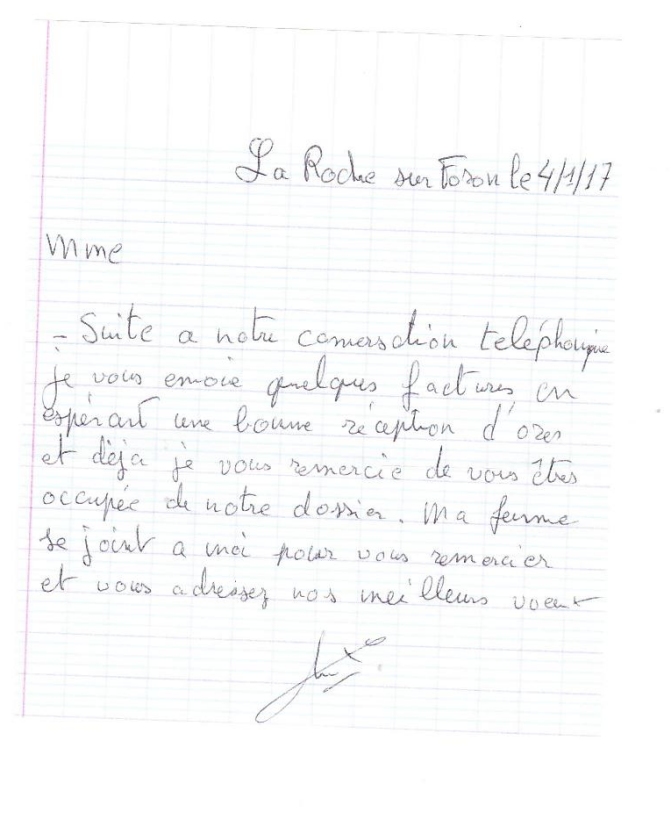 La Roche sur Foron le 4/1/17
Mme
- Suite a notre conversation teléphonique
je vous envoie quelques factures en
espérant une bonne réception d'ores
et dèja je vous remercie de vous êtres
occupée de notre dossier. Ma femme
se joint a moi pour vous remercier
et vous adressez nos meilleurs voeux